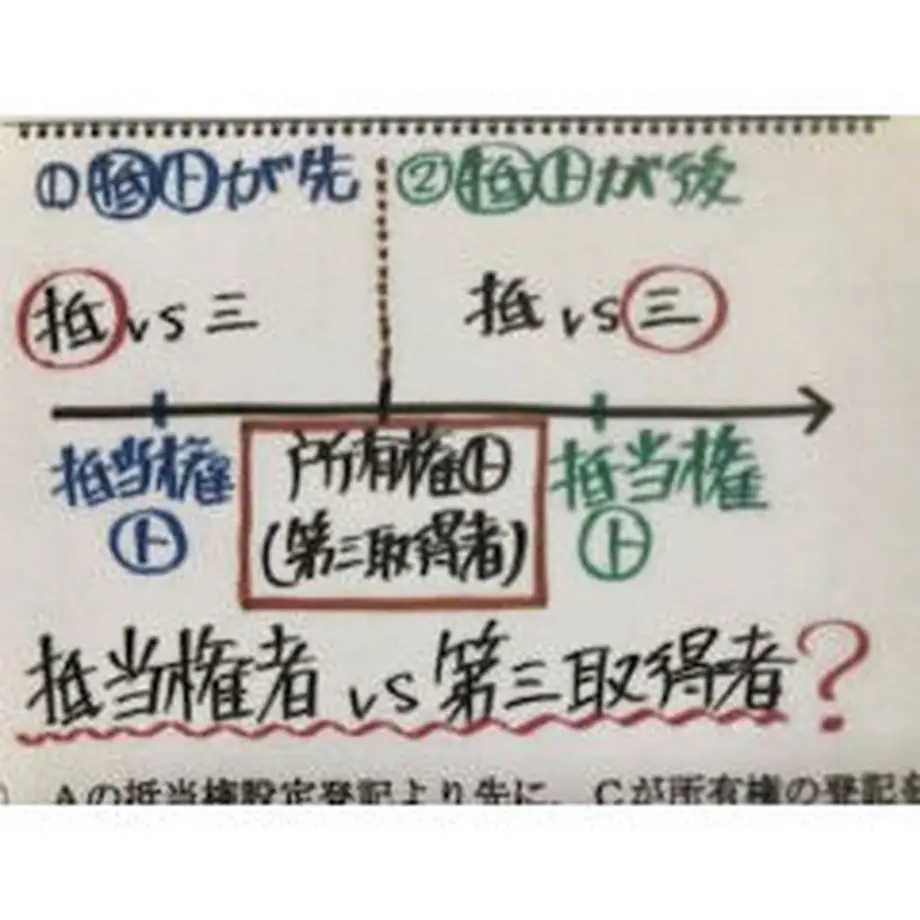 ①㊤抵㋣が先
②抵㋣が後
抵 vs 三
抵 vs 三
抵当権
㋣
所有権㋣
(第三取得者)
抵当権
㋣
抵当権者 vs 第三取得者?
Aの抵当権設定登記より先に、Cが所有権の登記